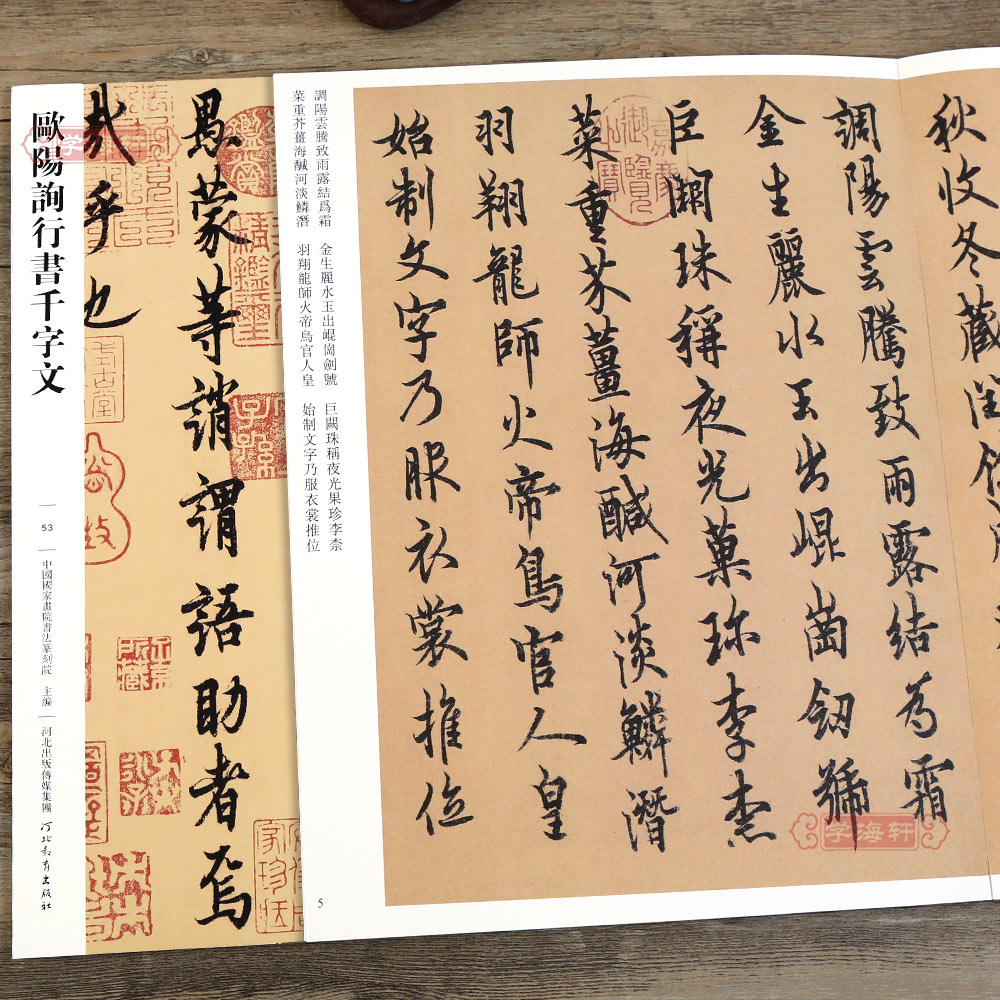 秋收冬藏閏
調陽雲騰致雨露結為霜
金生麗水玉出崐崗劍號
巨闕珠稱夜光菓珎李柰
菜重芥薑海醎河淡鱗潛
羽翔龍師火帝鳥官人皇
始制文字乃服衣裳推位
調陽雲騰致雨露結爲霜　金生麗水玉出崐崗劍號　巨闕珠稱夜光果珍李柰
菜重芥薑海醎河淡鱗潛　羽翔龍師火帝鳥官人皇　始制文字乃服衣裳推位
5
愚蒙等誚謂語助者焉
哉乎也
歐陽詢行書千字文
53
中國國家畫院書法篆刻院 主编
河北出版傳媒集團 河北教育出版社
御覽之寶
字海轩